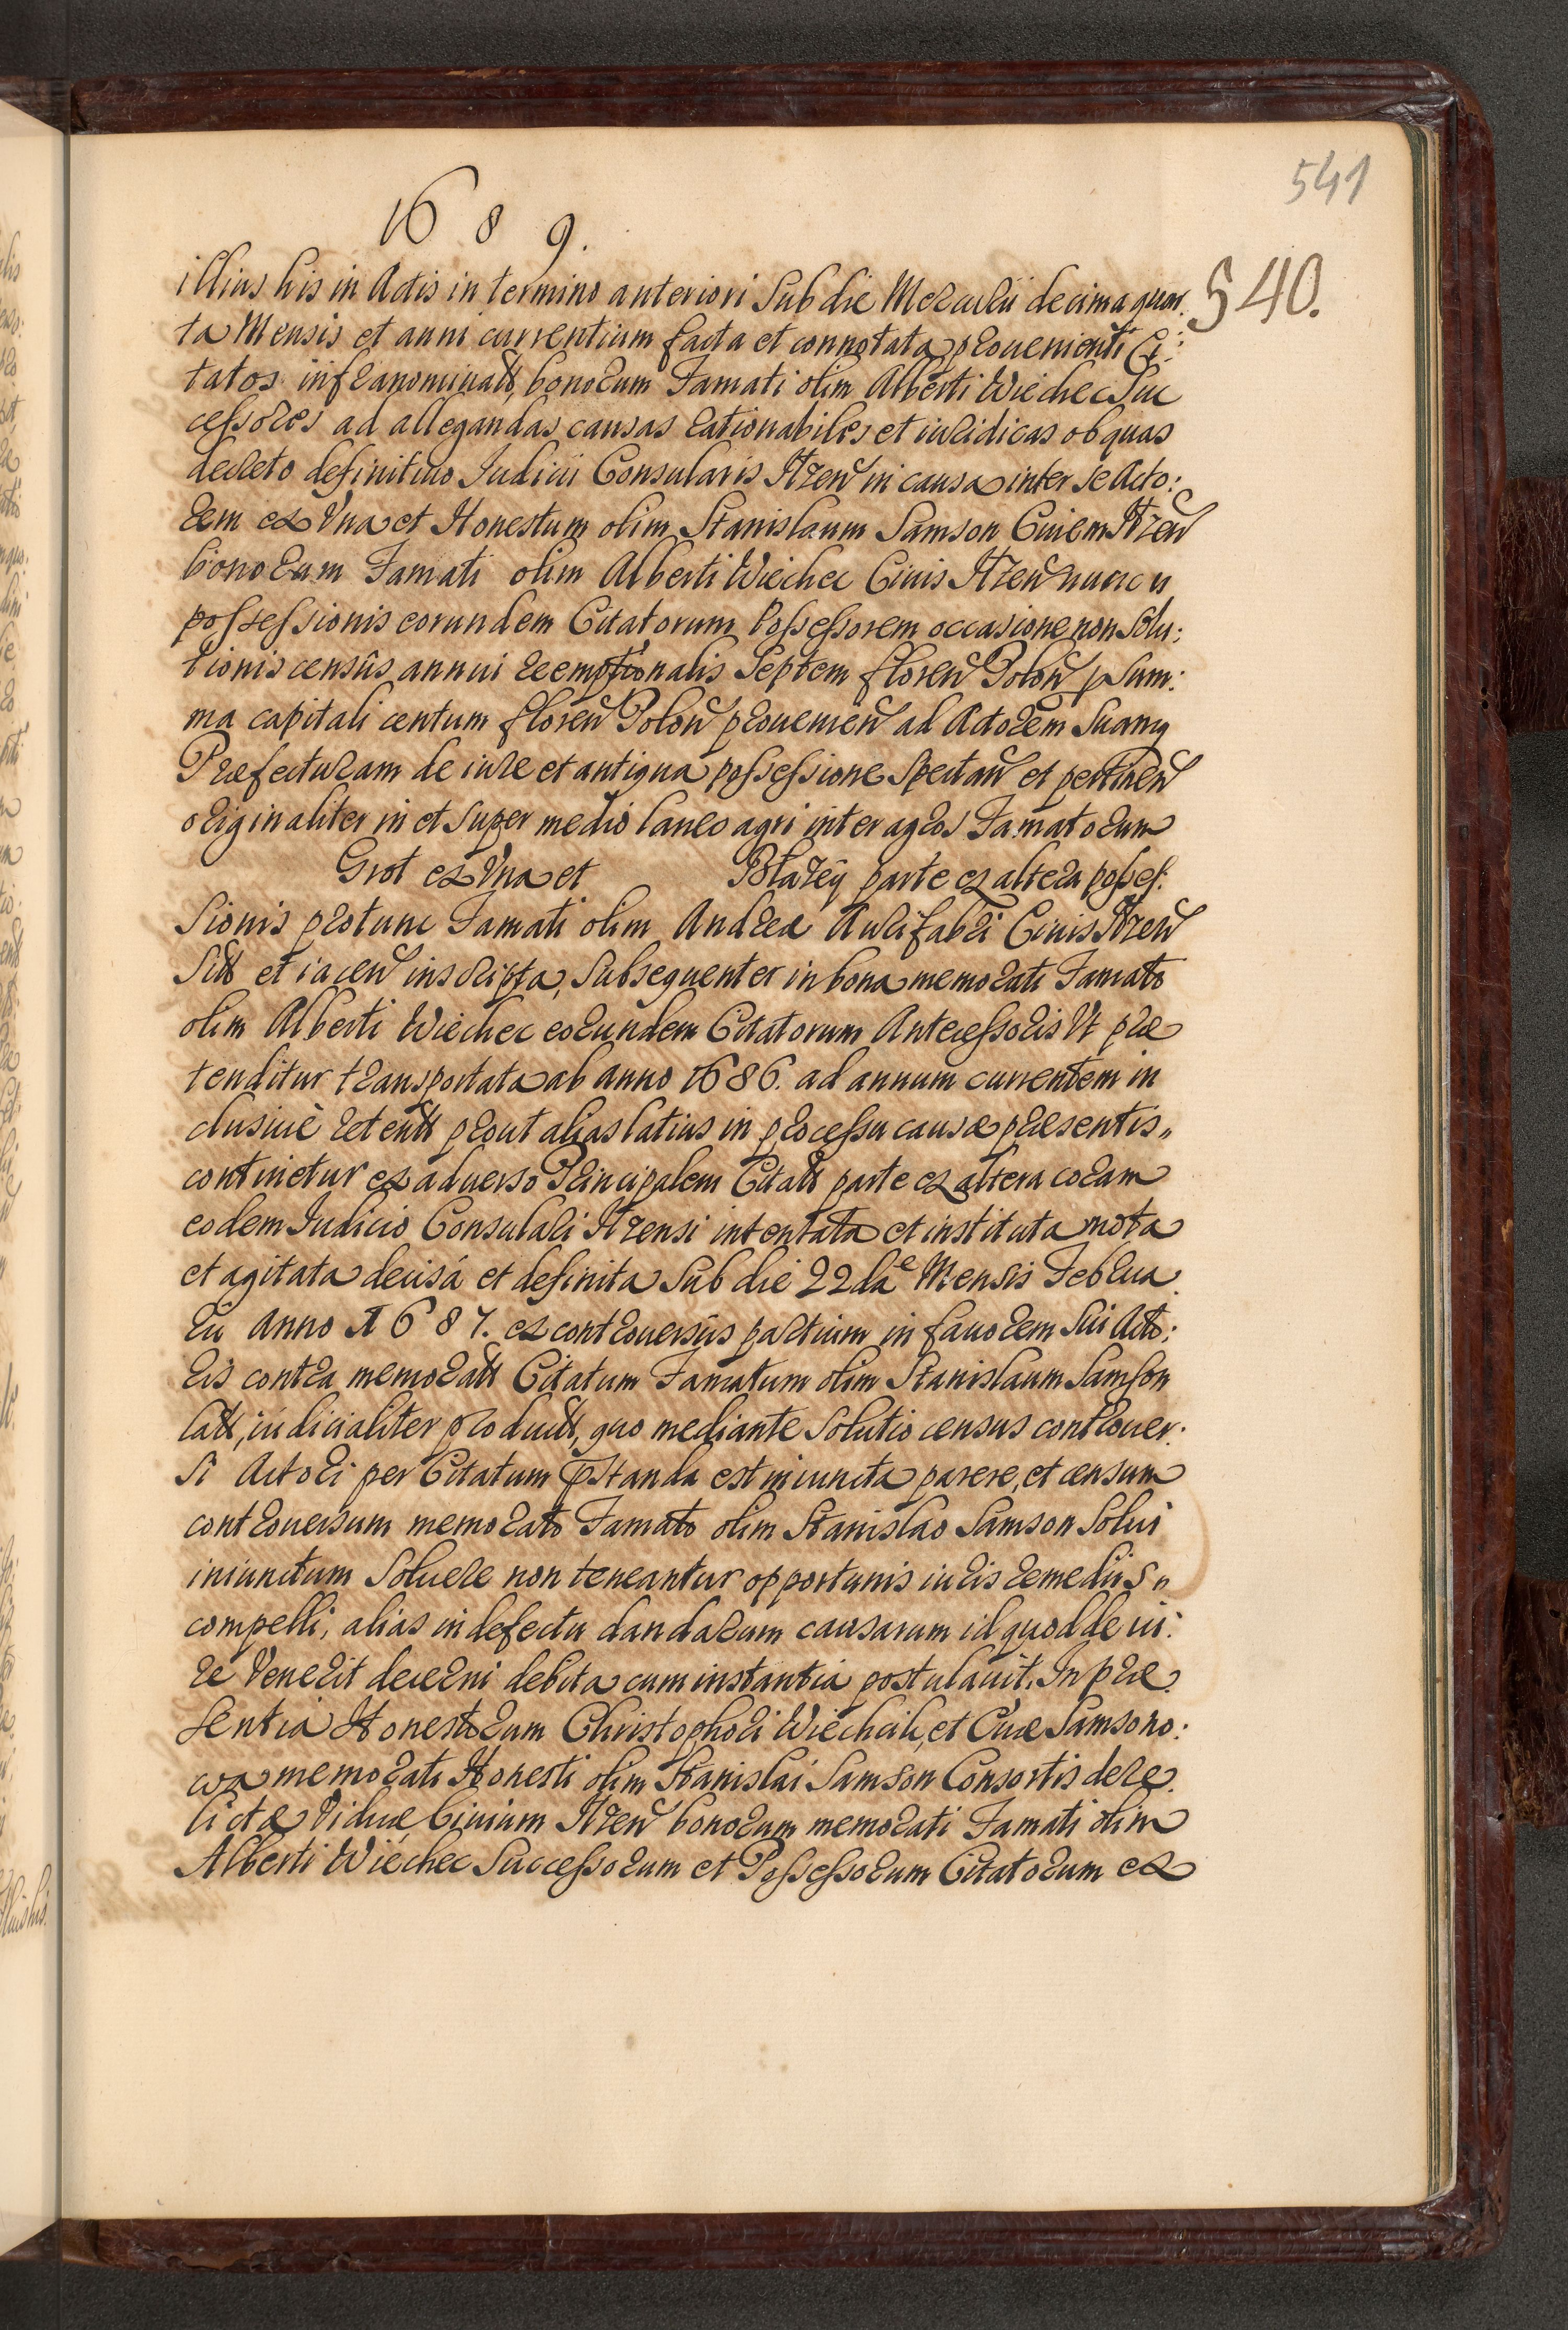 541
1689.
§ 40.
illius his in Actis in termino anteriori Sub die Mercurii decima quar:
ta Mensis et anni currentium facta et connotata prouenienti Ci:
tatos infranominatt, bonorum Famati olim Alberti Wiechec Suc
cessores ad allegandas causas rationabiles et iuridicas ob quas
decreto definitiuo Iudicii Consularis Rzen in causa inter se Acto:
rem ex Vna et Honestum olim Stanislaum Samson Ciuem Rzen
bonorum Famati olim Alberti Wiechec Ciuis Rzen nunc
possessionis eorundem Citatorum Possessorem occasione non Solu:
tionis censûs annui reemptionalis Septem floren Polon p Sum:
ma capitali centum floren Polon prouenien ad Actorem Suamq
Præfecturam de iure et antiqua possessione Spectan et pertinen
originaliter in et super medio laneo agri inter agros Famatorum
Grot ex Vna et Błazeÿ parte ex altera posses:
Sionis protunc Famati olim Andreæ Aurifabri Ciuis Rzen
Sitt et iacen inscripta, Subsequenter in bona memorati Famati
olim Alberti Wiechec eorundem Citatorum Antecessoris Vt præ
tenditur transportata ab anno 1686. ad annum currentem in
clusiuè retentt prout alias latius in processu causæ præsentis
continetur ex aduerso Principalem Citatt parte ex altera coram
eodem Iudicio Consulari Rzensi intentata et instituta mota
et agitata decisa et definita Sub die 22da Mensis Februa:
rii Anno 1687. ex controuersiis partium in fauorem Sui Acto:
ris contra memoratt Citatum Famatum olim Stanislaum Samson
latt, iudicialiter productt, quo mediante Solutio census controuer:
Si Actori per Citatum pstanda est iniuncta parere, et censum
controuersum memorato Famato olim Stanislao Samson Solui
iniunctum Soluere non teneantur opportunis iuris remediis
compelli, alias in defectu dandarum causarum id quod de iu:
re Venerit decerni debita cum instantia postulauit. In præ
sentia Honestorum Christophori Wiechcik, et Euæ Samsono:
wa memorati Honesti olim Stanislai Samson Consortis dere
lictæ Viduæ Ciuium Rzen bonorum memorati Famati olim
Alberti Wiechec Successorum et Possessorum Citatorum ex